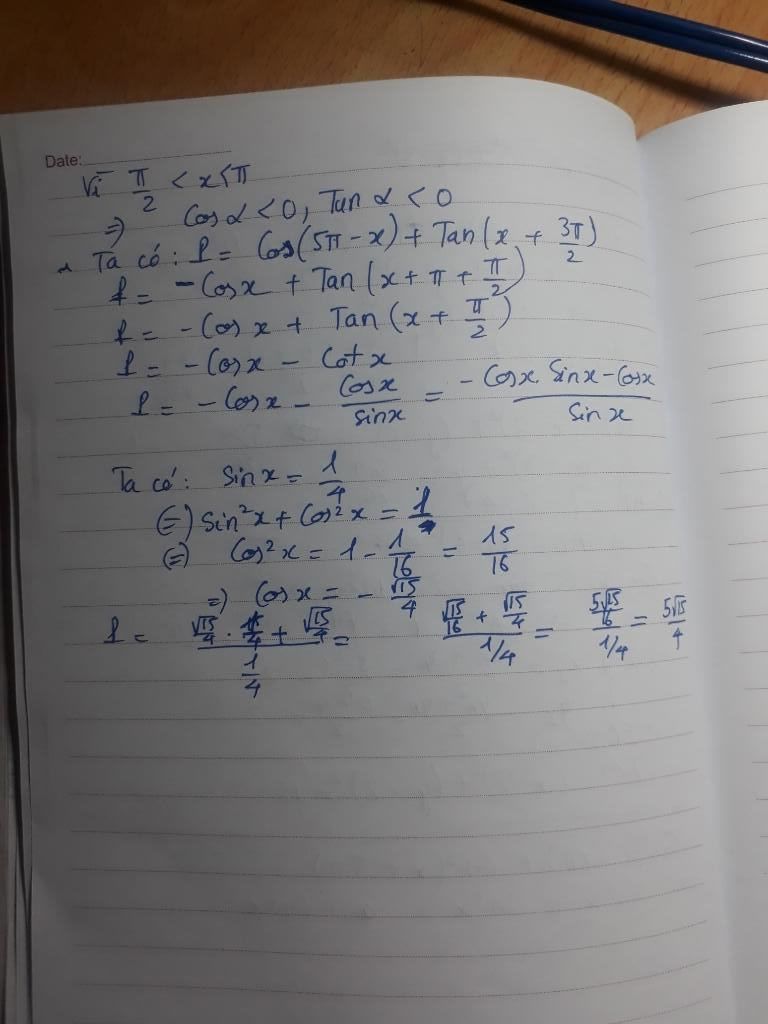 Date:
Vì π/2 < x < π
=) Cos α < 0, Tan α < 0
Ta có: P = Cos(5π - x) + Tan(x + 3π/2)
P = - Cos x + Tan(x + π + π/2)
P = - Cos x + Tan(x + π/2)
P = - Cos x - Cot x
P = - Cos x - Cos x/sin x = (- Cos x. Sin x - Cos x)/Sin x
Ta có: Sin x = 1/4
(=) Sin²x + Cos²x = 1
(=) Cos²x = 1 - 1/16 = 15/16
=) Cos x = - √15/4
P = (√15/4 . 1/4 + √15/4)/(1/4) = (√15/16 + √15/4)/(1/4) = (5√15/16)/(1/4) = 5√15/4